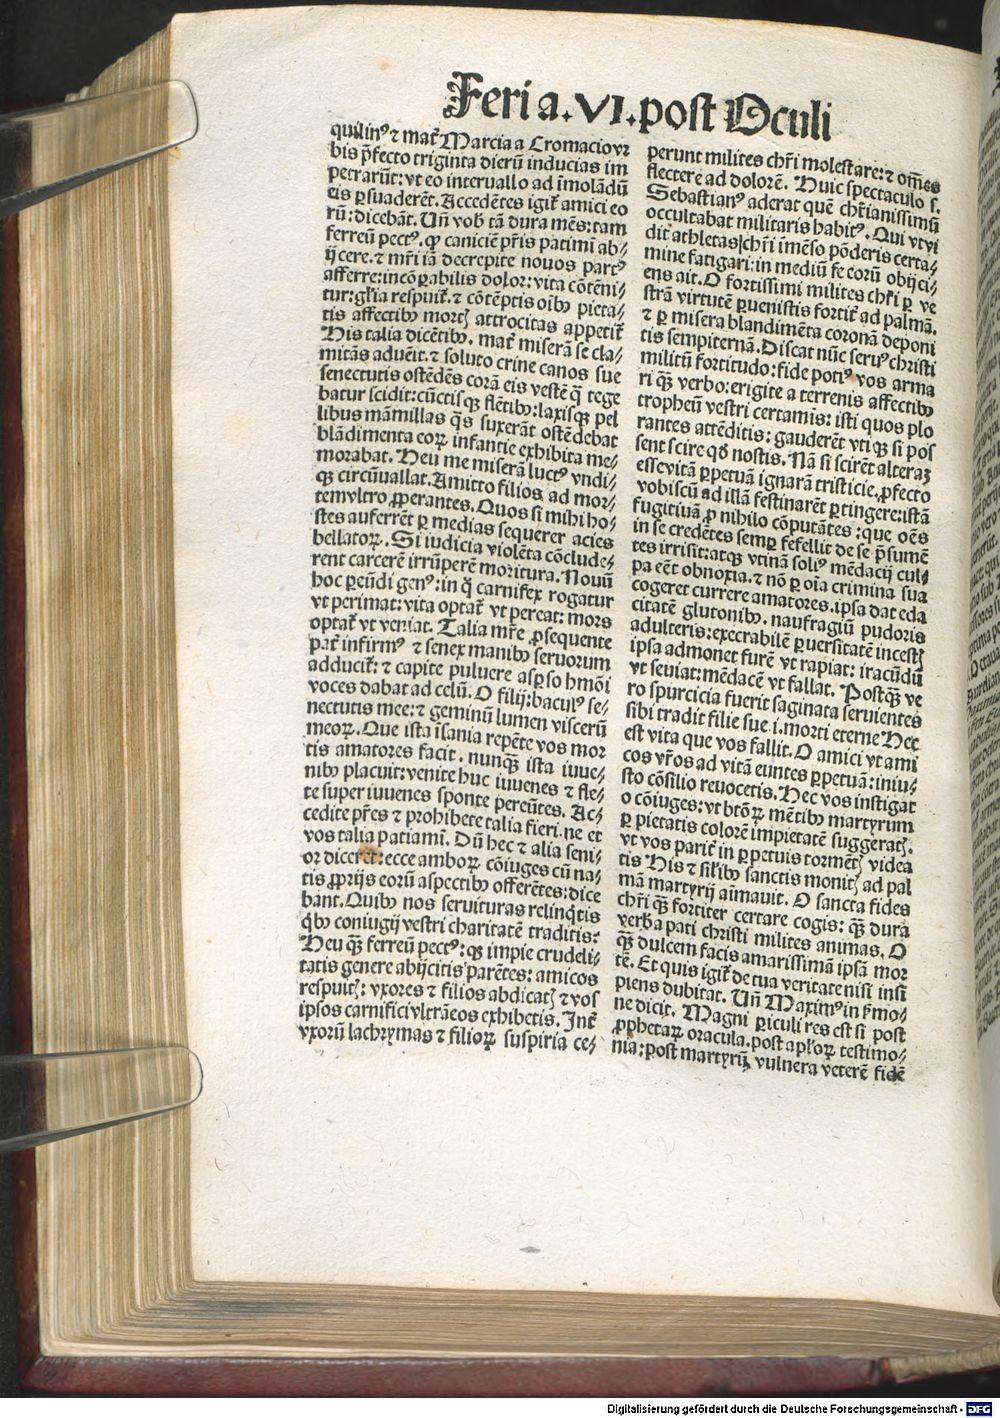 Feria.VI.post Oculi
quilinꝰ ⁊ mat̃ Marcia a Cromacio vr
bis p̃fecto triginta dierũ inducias im
petrarũt: vt eo interuallo ad ĩmolãdũ
eis ꝑsuaderẽt. Accedẽtes igit̃ amici eo
rũ: dicebãt. Uñ vob̃ tã dura mẽs: tam
ferreũ pectꝰ. ꝙ caniciẽ p̃ris patimĩ ab/
ijcere. ⁊ mr̃i iã decrepite nouos partꝰ
afferre: incõꝑabilis dolor: vita cõtẽni/
tur: gl̃ia respuit̃. ⁊ cõtẽptis oĩbꝰ pieta/
tis affectibꝰ mortꝭ attrocitas appetit̃
His talia dicẽtibꝰ. mat̃ miserã se cla/
mitãs aduẽit. ⁊ soluto crine canos sue
senectutis ostẽdẽs corã eis vestẽ q̃ tege
batur scidit: cũctisqꝫ flẽtibꝰ: laxisqꝫ pel
libus mãmillas q̃s suxerãt ostẽdebat
blãdimenta eoꝝ infantie exhibita me/
morabat. Heu me miserã luctꝰ vndi/
qꝫ circũuallat. Amitto filios ad mor/
tem vltro ꝓperantes. Quos si mihi ho/
stes auferrẽt ꝑ medias sequerer acies
bellatoꝝ. Si iudicia violẽta cõclude/
rent carcerẽ irrũperẽ moritura. Nouũ
hoc ꝑeũdi genꝰ: in q̃ carnifex rogatur
vt perimat: vita optat̃ vt pereat: mors
optat̃ vt veniat. Talia mr̃e ꝓsequente
pat̃ infirmꝰ ⁊ senex manibꝰ seruorum
adducit̃: ⁊ capite puluere asꝑso hmõi
voces dabat ad celũ. O filij: baculꝰ se/
nectutis mee: ⁊ geminũ lumen viscerũ
meoꝝ. Que ista ĩsania repẽte vos mor
tis amatores facit. nunqꝫ̃ ista iuue/
nibꝰ placuit: venite huc iuuenes ⁊ fle/
te super iuuenes sponte pereũtes. Ac/
cedite p̃res ⁊ prohibete talia fieri. ne et
vos talia patiamĩ. Dũ hec ⁊ alia seni/
or diceret: ecce amboꝝ cõiuges cũ na/
tis ꝓprijs eorũ aspectibꝰ offerẽtes: dice
bant. Quibꝰ nos seruituras relinq̃tis
q̃bꝰ coniugij vestri charitatẽ traditis:
Heu qꝫ̃ ferreũ pectꝰ: qꝫ̃ impie crudeli/
tatis genere abijcitis parẽtes: amicos
respuitꝭ: vxores ⁊ filios abdicatꝭ ⁊ vos
ipsos carnifici vltrãeos exhibetis. Int̃
vxorũ lachrymas ⁊ filioꝝ suspiria ce/
perunt milites chr̃i molestare: ⁊ om̃es
flectere ad dolorẽ. Huic spectaculo s.
Sebastianꝰ aderat quẽ chr̃ianissimũ
occultabat militaris habitꝰ. Qui vt vi
dit athletas chr̃i imẽso põderis certa/
mine fatigari: in mediũ se eorũ obijci/
ens ait. O fortissimi milites chr̃i ꝑ ve
strã virtutẽ ꝑuenistis fortit̃ ad palmã.
⁊ ꝑ misera blandimẽta coronã deponi
tis sempiternã. Discat nũc seruꝰ christi
militũ fortitudo: fide potiꝰ vos arma
ri qꝫ̃ verbo: erigite a terrenis affectibꝰ
tropheũ vestri certamis: isti quos plo
rantes attẽditis: gauderẽt vtiqꝫ si pos
sent scire qd̃ nostis. Nã si scirẽt alteraꝫ
esse vitã ꝑpetuã ignarã tristicie, ꝓfecto
vobiscũ ad illã festinarẽt ꝑtingere: istã
fugitiuã ꝓ nihilo cõputãtes: que oẽs
in se credẽtes semꝑ fefellit de se p̃sumẽ
tes irrisit: atqꝫ vtinã soliꝰ mẽdacij cul/
pa eẽt obnoxia. ⁊ nõ ꝑ oĩa crimina sua
cogeret currere amatores. ipsa dat eda
citatẽ glutonibꝰ. naufragiũ pudoris
adulteris: execrabilẽ ꝑuersitatẽ incestꝭ
ipsa admonet furẽ vt rapiat: iracũdũ
vt seuiat: mẽdacẽ vt fallat. Postqꝫ̃ ve
ro spurcicia fuerit saginata seruientes
sibi tradit filie sue .i. morti eterne Hec
est vita que vos fallit. O amici vt ami
cos vr̃os ad vitã euntes ꝑpetuã: iniu/
sto cõsilio reuocetis. Hec vos instigat
o cõiuges: vt btõꝝ mẽtibꝰ martyrum
ꝑ pietatis colorẽ impietatẽ suggeratꝭ.
vt vos parit̃ in ꝑpetuis tormẽtꝭ videa
tis His ⁊ sil̃ibꝰ sanctis monitꝭ ad pal
mã martyrij aĩmauit. O sancta fides
chr̃i qꝫ̃ fortiter certare cogis: qꝫ̃ dura
verba pati christi milites animas. O
qꝫ̃ dulcem facis amarissimã ipsã mor
tẽ. Et quis igit̃ de tua veritate nisi insi
piens dubitat. Uñ Maximꝰ in ẜmo/
ne dicit. Magni ꝑiculi res est si post
ꝓphetaꝝ oracula. post ap̃loꝝ testimo/
nia: post martyrũ vulnera veterẽ fidẽ
Digitalisierung gefördert durch die Deutsche Forschungsgemeinschaft - DFG